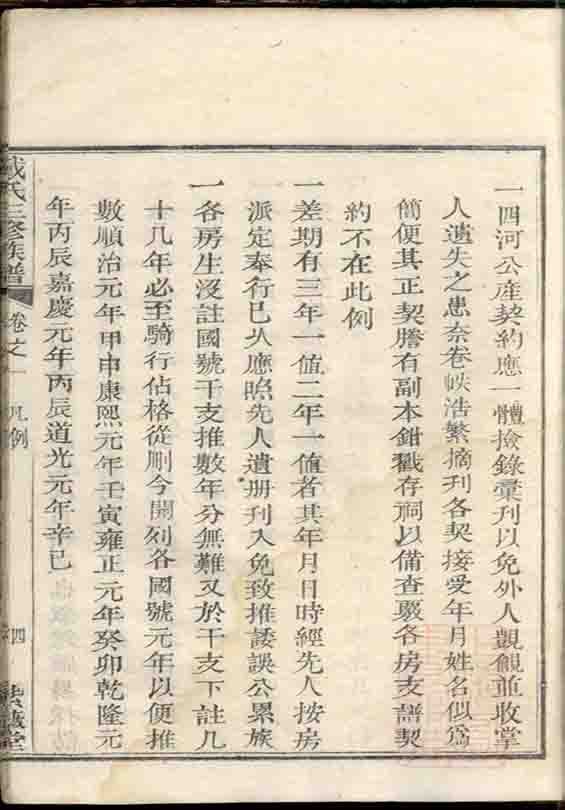 一四河公產契約應一體撿錄彙刊以免外人覬覦並收掌
人遺失之患奈卷帙浩繁摘刊各契接受年月姓名似爲
簡便其正契謄有副本鉗戳存祠以備查覈各房支譜契
約不在此例
一差期有三年一值二年一值者其年月日時經先人按房
派定奉行已久應照先人遺册刊入免致推諉誤公累族
一各房生沒註國號干支推數年分無難又於干支下註几
十几年必至騎行佔格從刪今開列各國號元年以便推
數順治元年甲申康熙元年壬寅雍正元年癸卯乾隆元
年丙辰嘉慶元年丙辰道光元年辛巳
氏三修族譜
卷之一
凡例
四
堂